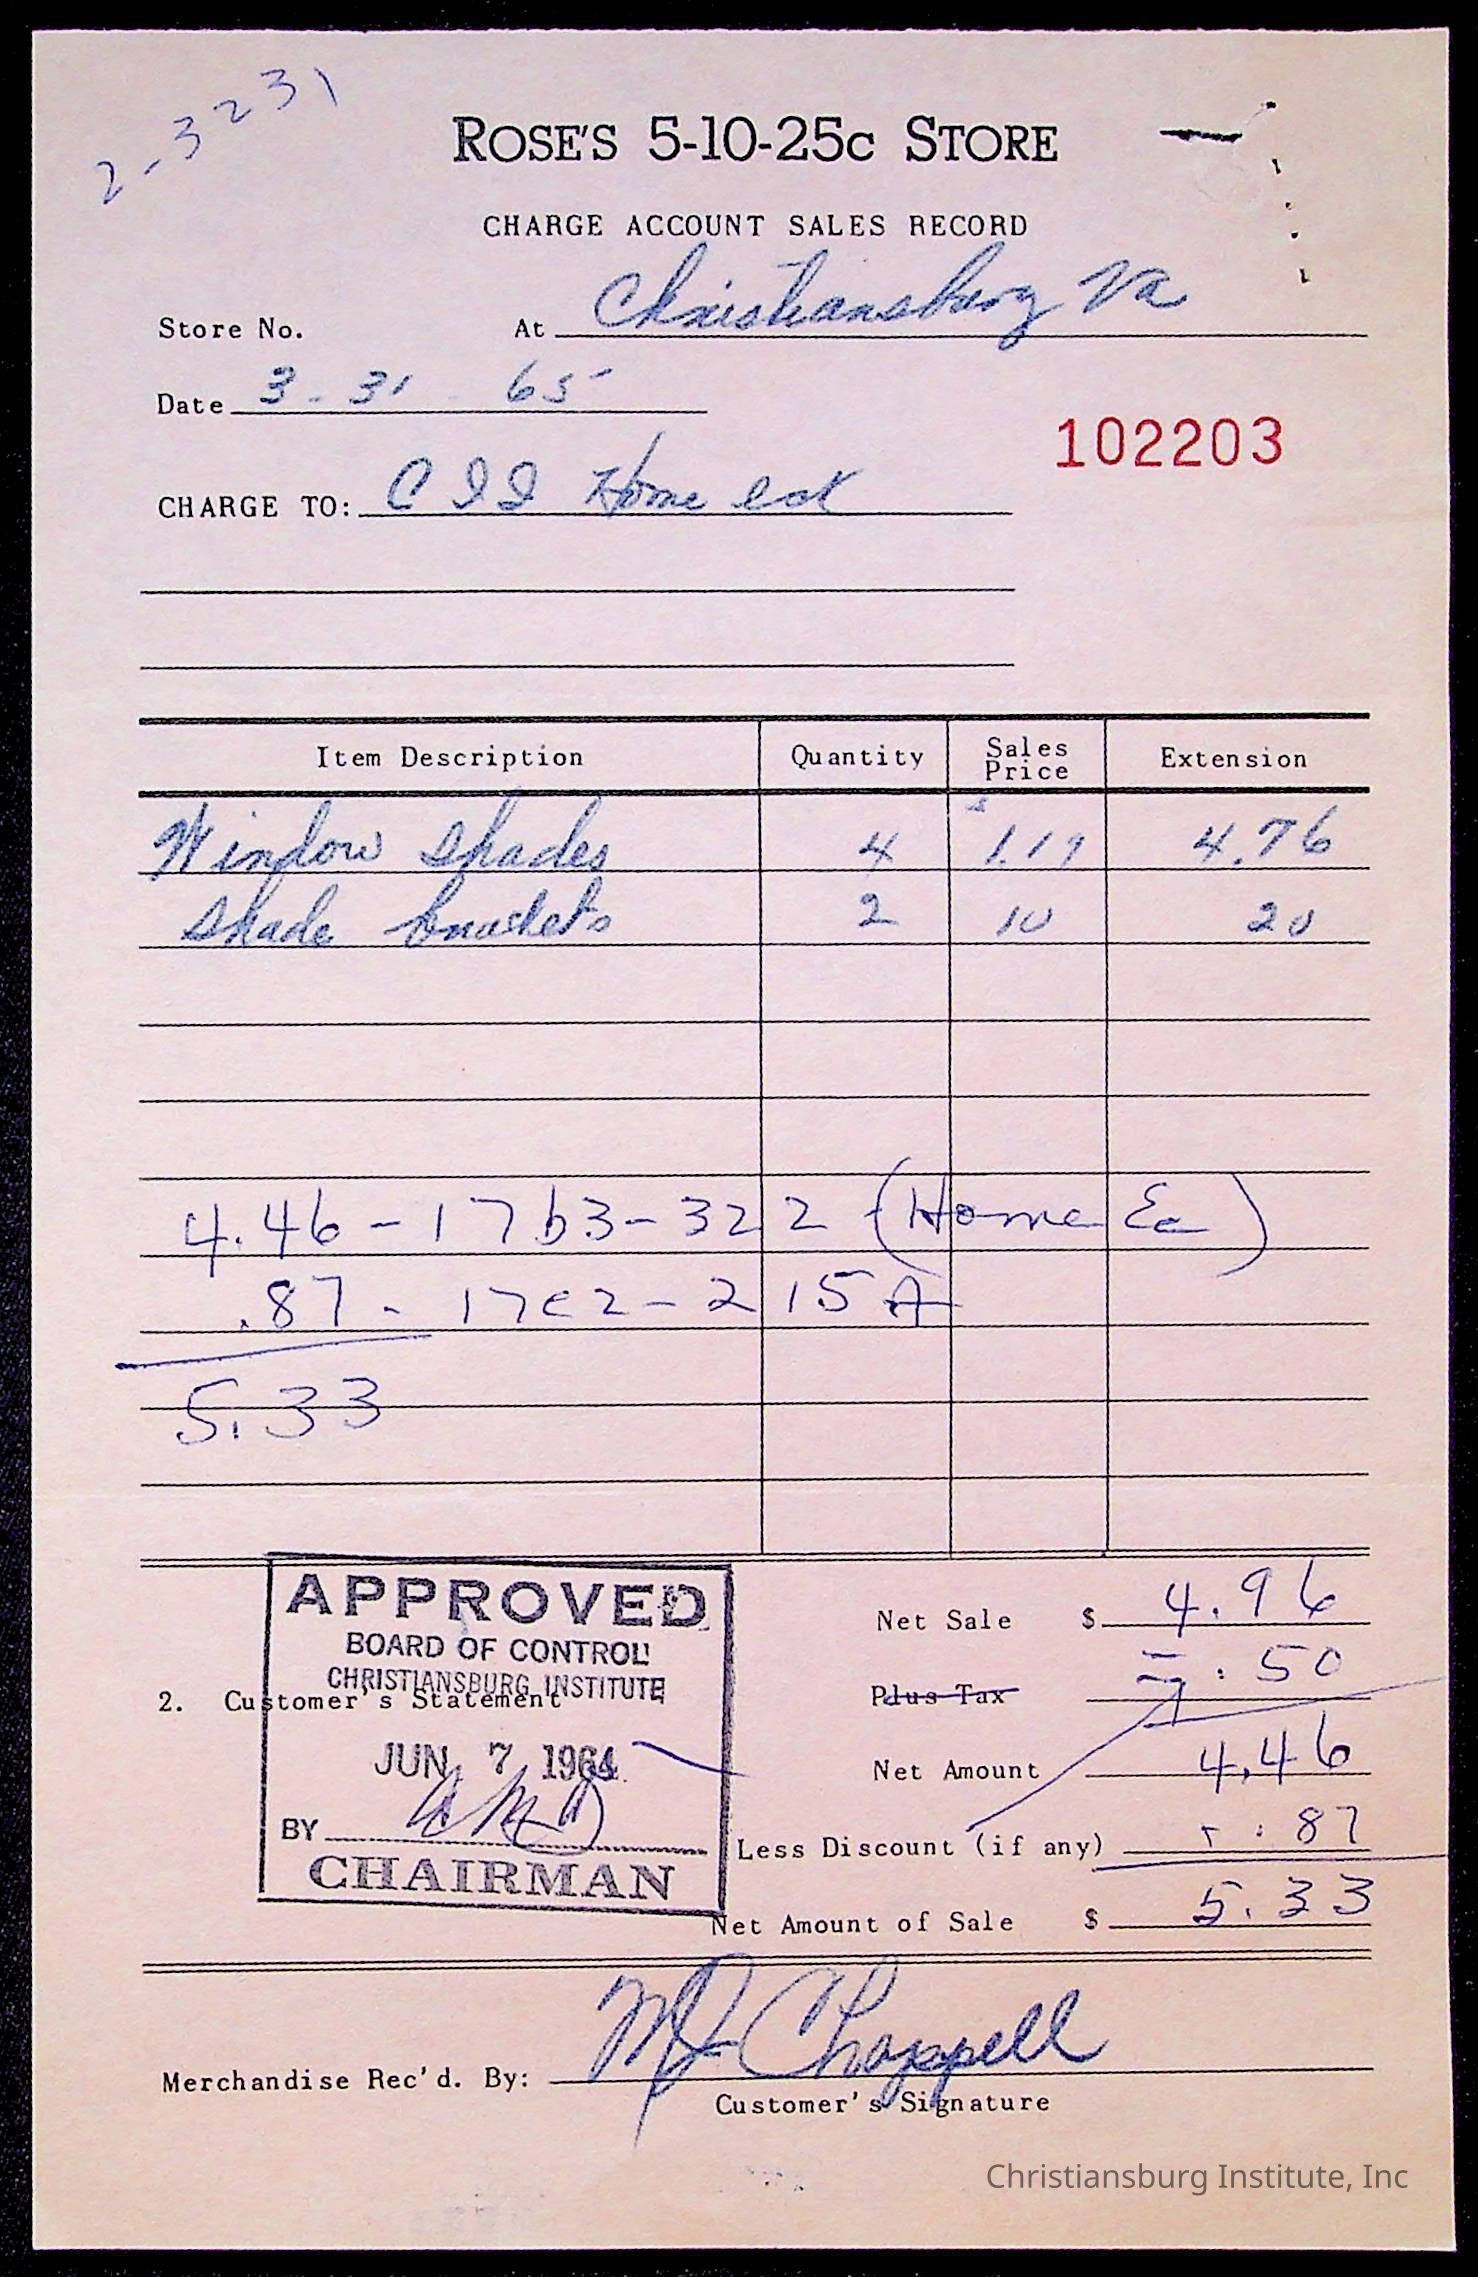 2-3231
ROSE'S 5-10-25c STORE
CHARGE ACCOUNT SALES RECORD
Store No. At Christiansburg Va
Date 3-31-65
102203
CHARGE TO: C I I Home eck
Item Description Quantity Sales Price Extension
Window Shades 4 $1.19 4.76
Shade brackets 2 10 20
4.46-17b3-322 (Home Ec)
.87-17c2-215A
5.33
APPROVED
BOARD OF CONTROL
CHRISTIANSBURG INSTITUTE
JUN 7 1964
BY
CHAIRMAN
2. Customer's Statement
Net Sale $ 4.96
Plus Tax .50
Net Amount 4.46
Less Discount (if any) + .87
Net Amount of Sale $ 5.33
Merchandise Rec'd. By: MJ Chappell
Customer's Signature
Christiansburg Institute, Inc